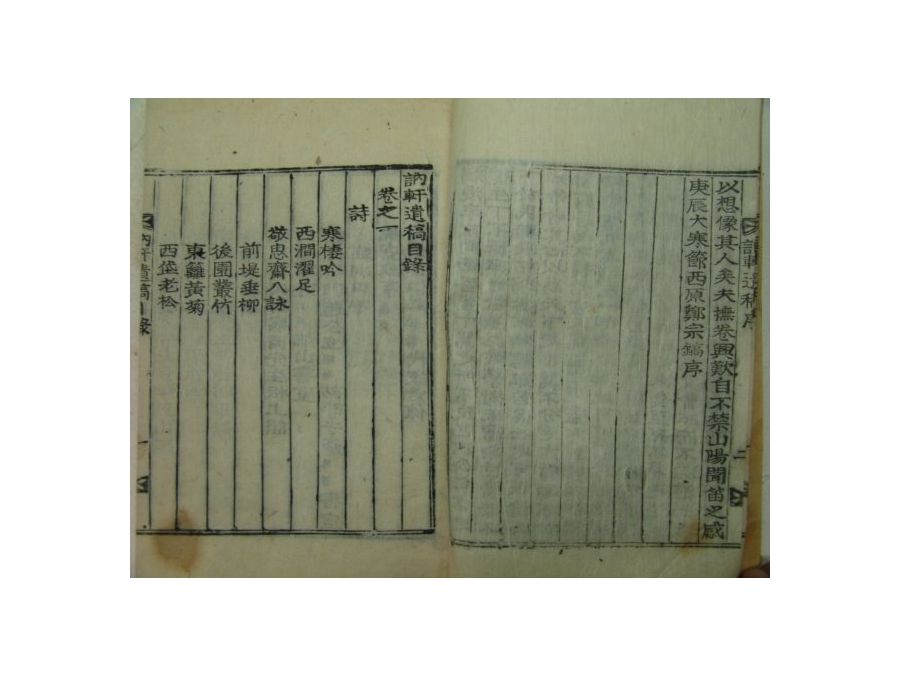 以想像其人矣夫撫卷興歎自不禁山陽聞笛之感
庚辰大寒節西原鄭宗鎬序
訥軒遺稿序
二
訥軒遺稿目錄
卷之一
詩
寒棲吟
西澗濯足
敬忠齋八詠
前堤垂柳
後園叢竹
東籬黃菊
西岱老松
訥軒遺稿目錄
一